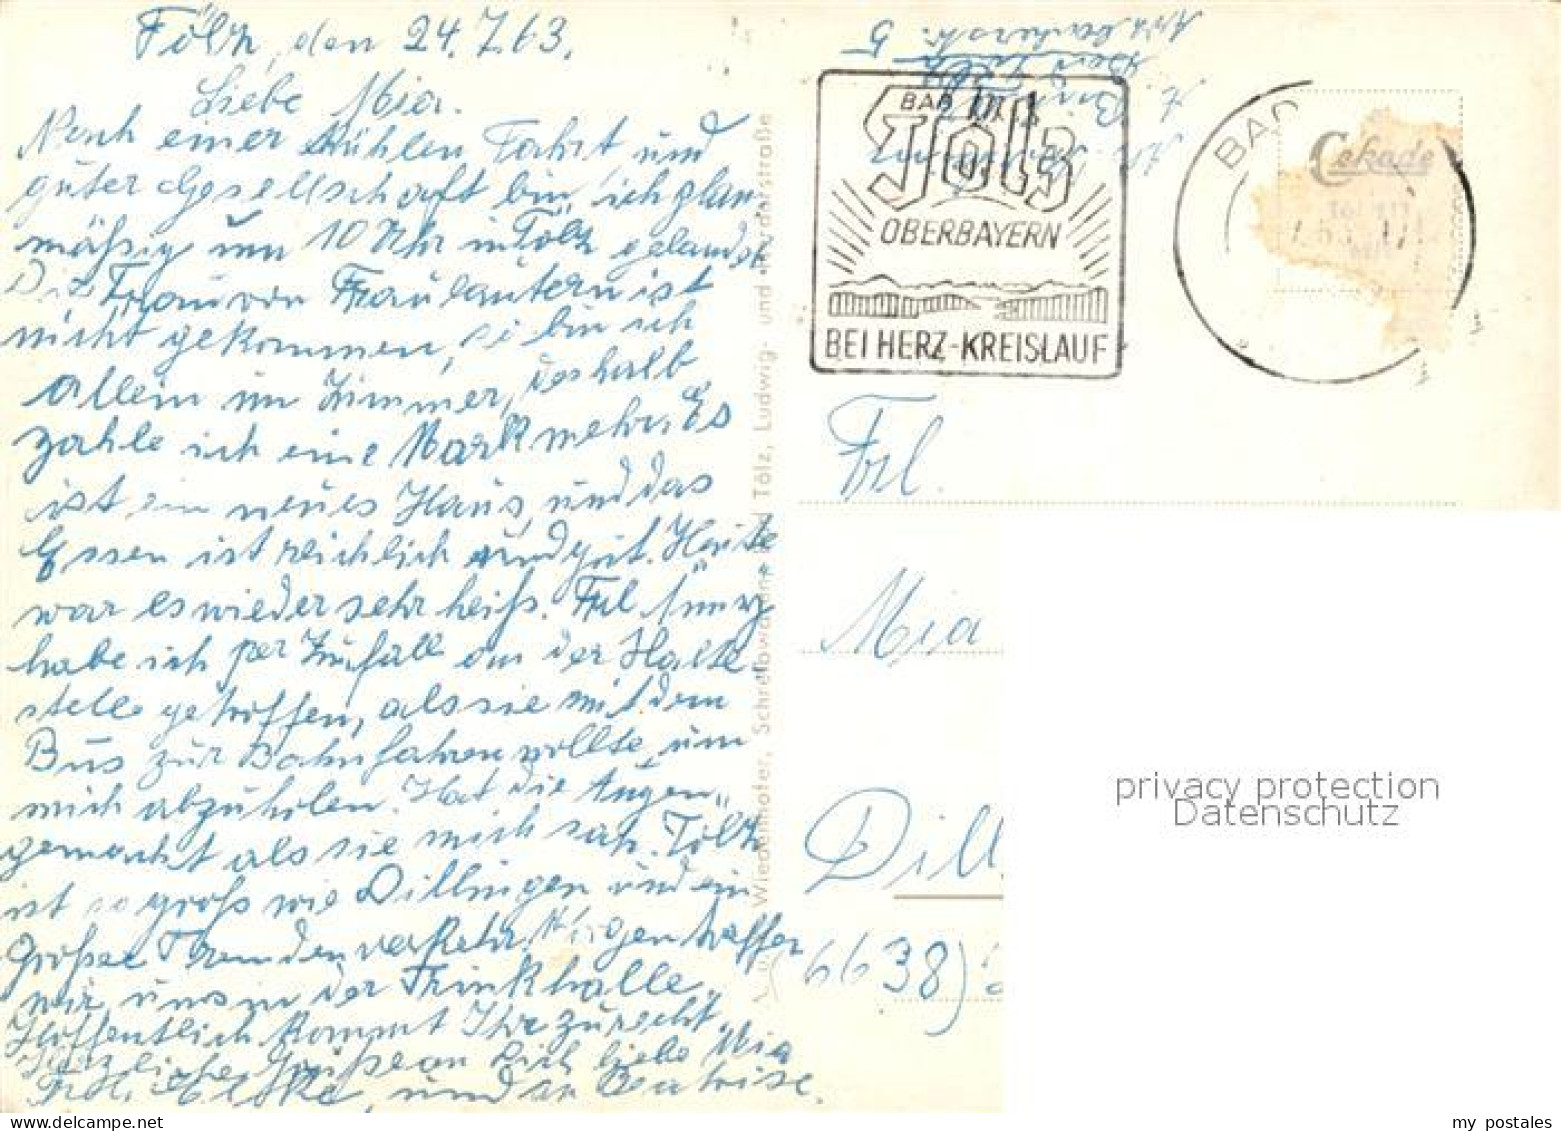 Tölz, den 24.7.63.
Liebe Mia.
Nach einer kühlen Fahrt und
guter Gesellschaft bin ich plan
mäßig um 10 Uhr in Tölz gelandet.
Die Frau von Fraulautern ist
nicht gekommen, so bin ich
allein im Zimmer, deshalb
zahle ich eine Mark mehr. Es
ist ein neues Haus, und das
Essen ist reichlich und gut. Heute
war es wieder sehr heiß. Frl.
habe ich per Zufall an der Halte
stelle getroffen, als sie mit dem
Bus zur Bahn fahren wollte, um
mich abzuholen. Hat die Augen
gemacht als sie mich sah. Tölz
ist so groß wie Dillingen und ein
Großer Fremdenverkehr. Morgen treffen
wir uns in der Trinkhalle.
Hoffentlich kommt Ihr zurecht.
Herzliche Grüße an Dich liebe Mia
Frl. und an Beatrise.
Wiedenhofer, Schreibwaren, Bad Tölz, Ludwig- und
Bad Tölz
5
BAD
Tölz
OBERBAYERN
BEI HERZ-KREISLAUF
BAD
Cekade
Frl.
Mia
Dill
(6638)
privacy protection
Datenschutz
my postales